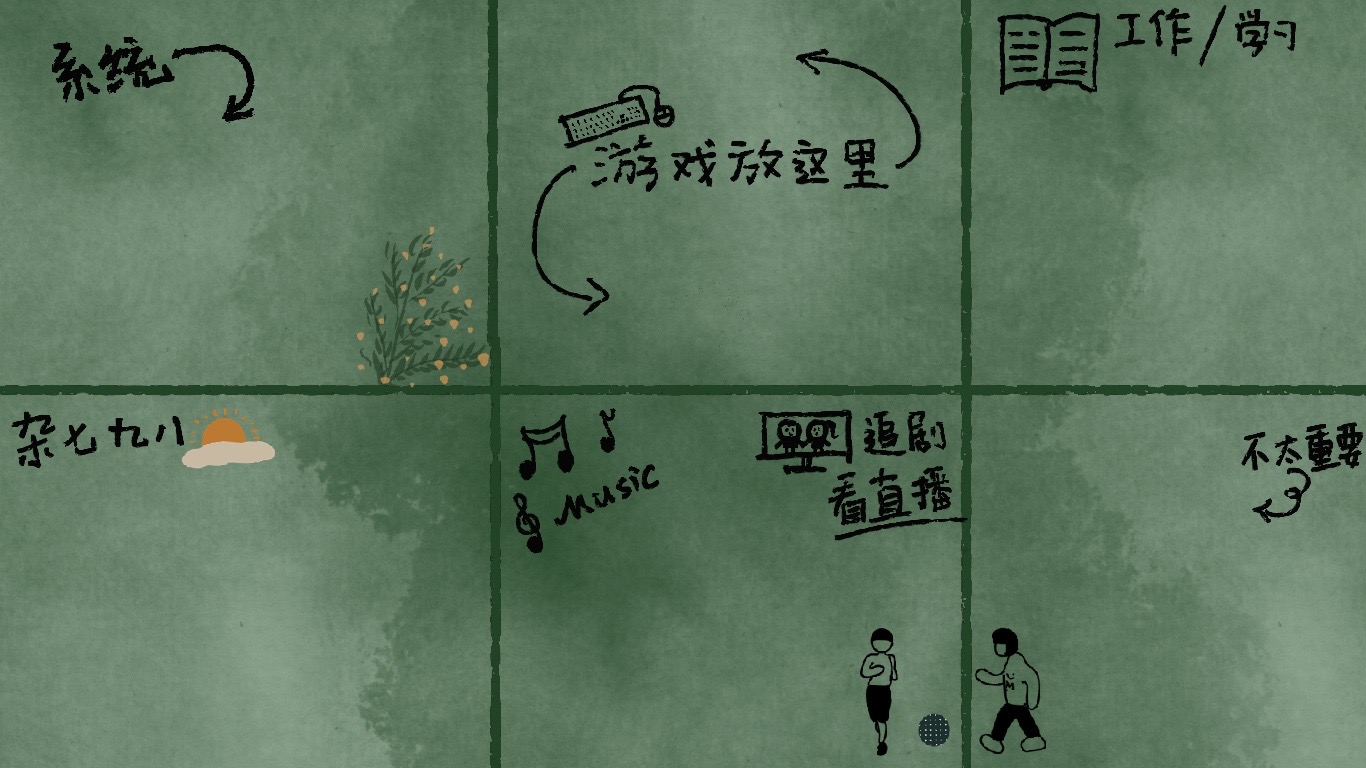 系统
游戏放这里
工作/学习
杂七九八
Music
追剧
看直播
不太重要